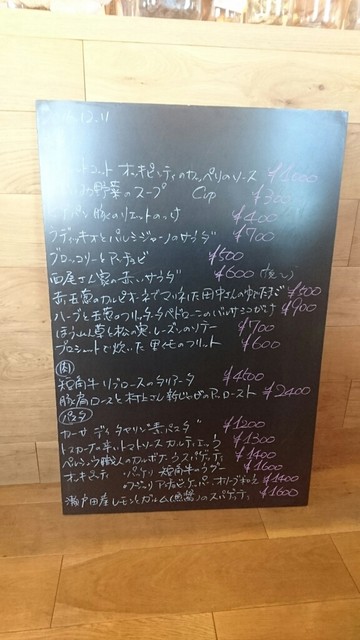 12.11
オッキピンティのカッペリのソース ¥1000
野菜のスープ Cup ¥300
パン 豚のリエットのっけ ¥400
ラディッキオとパルミジャーノのサラダ ¥700
ブロッコリーとアンチョビ ¥500
西尾さん家の赤いサラダ ¥600
赤玉葱のカルピオーネでマリネした田中さんのゆでたまご ¥500
ハーブと玉葱のフリッタータ ペトローニのバルサミコがけ ¥900
ほうれん草と松の実、レーズンのソテー ¥700
プロシュートで炊いた里イモのフリット ¥600
肉
短角牛リブロースのタリアータ ¥4500
豚肩ロースと村上さん新じゃがのアッロースト ¥2400
パスタ
¥1200
トスカーナの辛いトマトソース ¥1300
ペルシュウ職人のカルボナーラ スパゲティ ¥1400
オッキピンティ パッケリ 短角牛ラグー ¥1600
アンチョビ ケーパー オリーブ和え ¥1400
瀬戸田産レモンとガルム(魚醤)のスパゲティ ¥1600